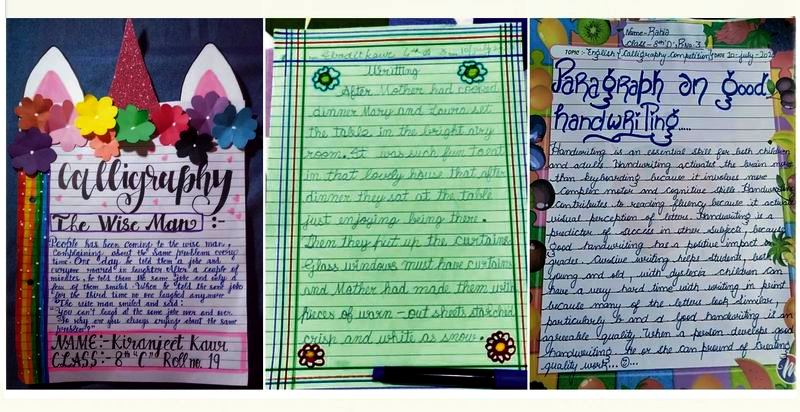 Calligraphy
The Wise Man :-
People has been coming to the wise man,
complaining about the same problems every
time. One day he told them a joke and
everyone roared in laughter. After a couple of
minutes, he told them the same joke and only a
few of them smiled. When he told the same joke
for the third time no one laughed anymore.
The wise man smiled and said:
"You can't laugh at the same joke over and over.
So why are you always crying about the same
problem?"
NAME:- Kiranjeet Kaur
CLASS:- 8th "C" Roll no. 19
10/july/2
Writting
After Mother had
dinner Mary and Laura set
the table in the bright airy
room. It was such fun to eat
in that lovely house that after
dinner they sat at the table
just enjoying being there.
Then they put up the curtains
Glass windows must have curtains
and Mother had made them with
pieces of worn-out sheets starched
crisp and white as snow.
Name:- Rabia
Class- 8th 'D', R.No. 3
TOPIC:- English Calligraphy Competition DATE 10-july-202
Paragraph on good
handwriting....
Handwriting is an essential skill for both children
and adults. Handwriting activates the brain more
than keyboarding because it involves more
complex motor and cognitive skills. Handwriting
contributes to reading fluency because it activates
visual perception of letters. Handwriting is a
predictor of success in other subjects, because
good handwriting has a positive impact on
grades. Cursive writing helps students, both
young and old, with dyslexia children can
have a very hard time with writing in print
because many of the letters look similar,
particularly b and d. Good handwriting is an
agreeable quality. When a person develops good
handwriting he or she can proud of creating
quality work...